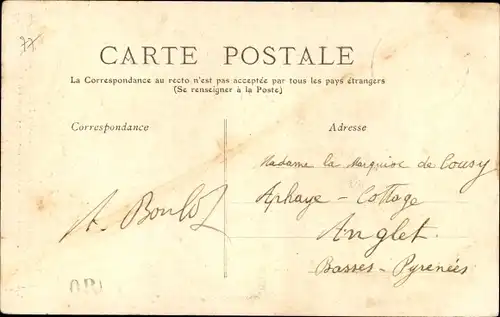 77
CARTE POSTALE
La Correspondance au recto n'est pas acceptée par tous les pays étrangers
(Se renseigner à la Poste)
Correspondance
Adresse
Madame la Marquise de Cousy
Aphaye - Cottage
Anglet.
Basses-Pyrénées
A.